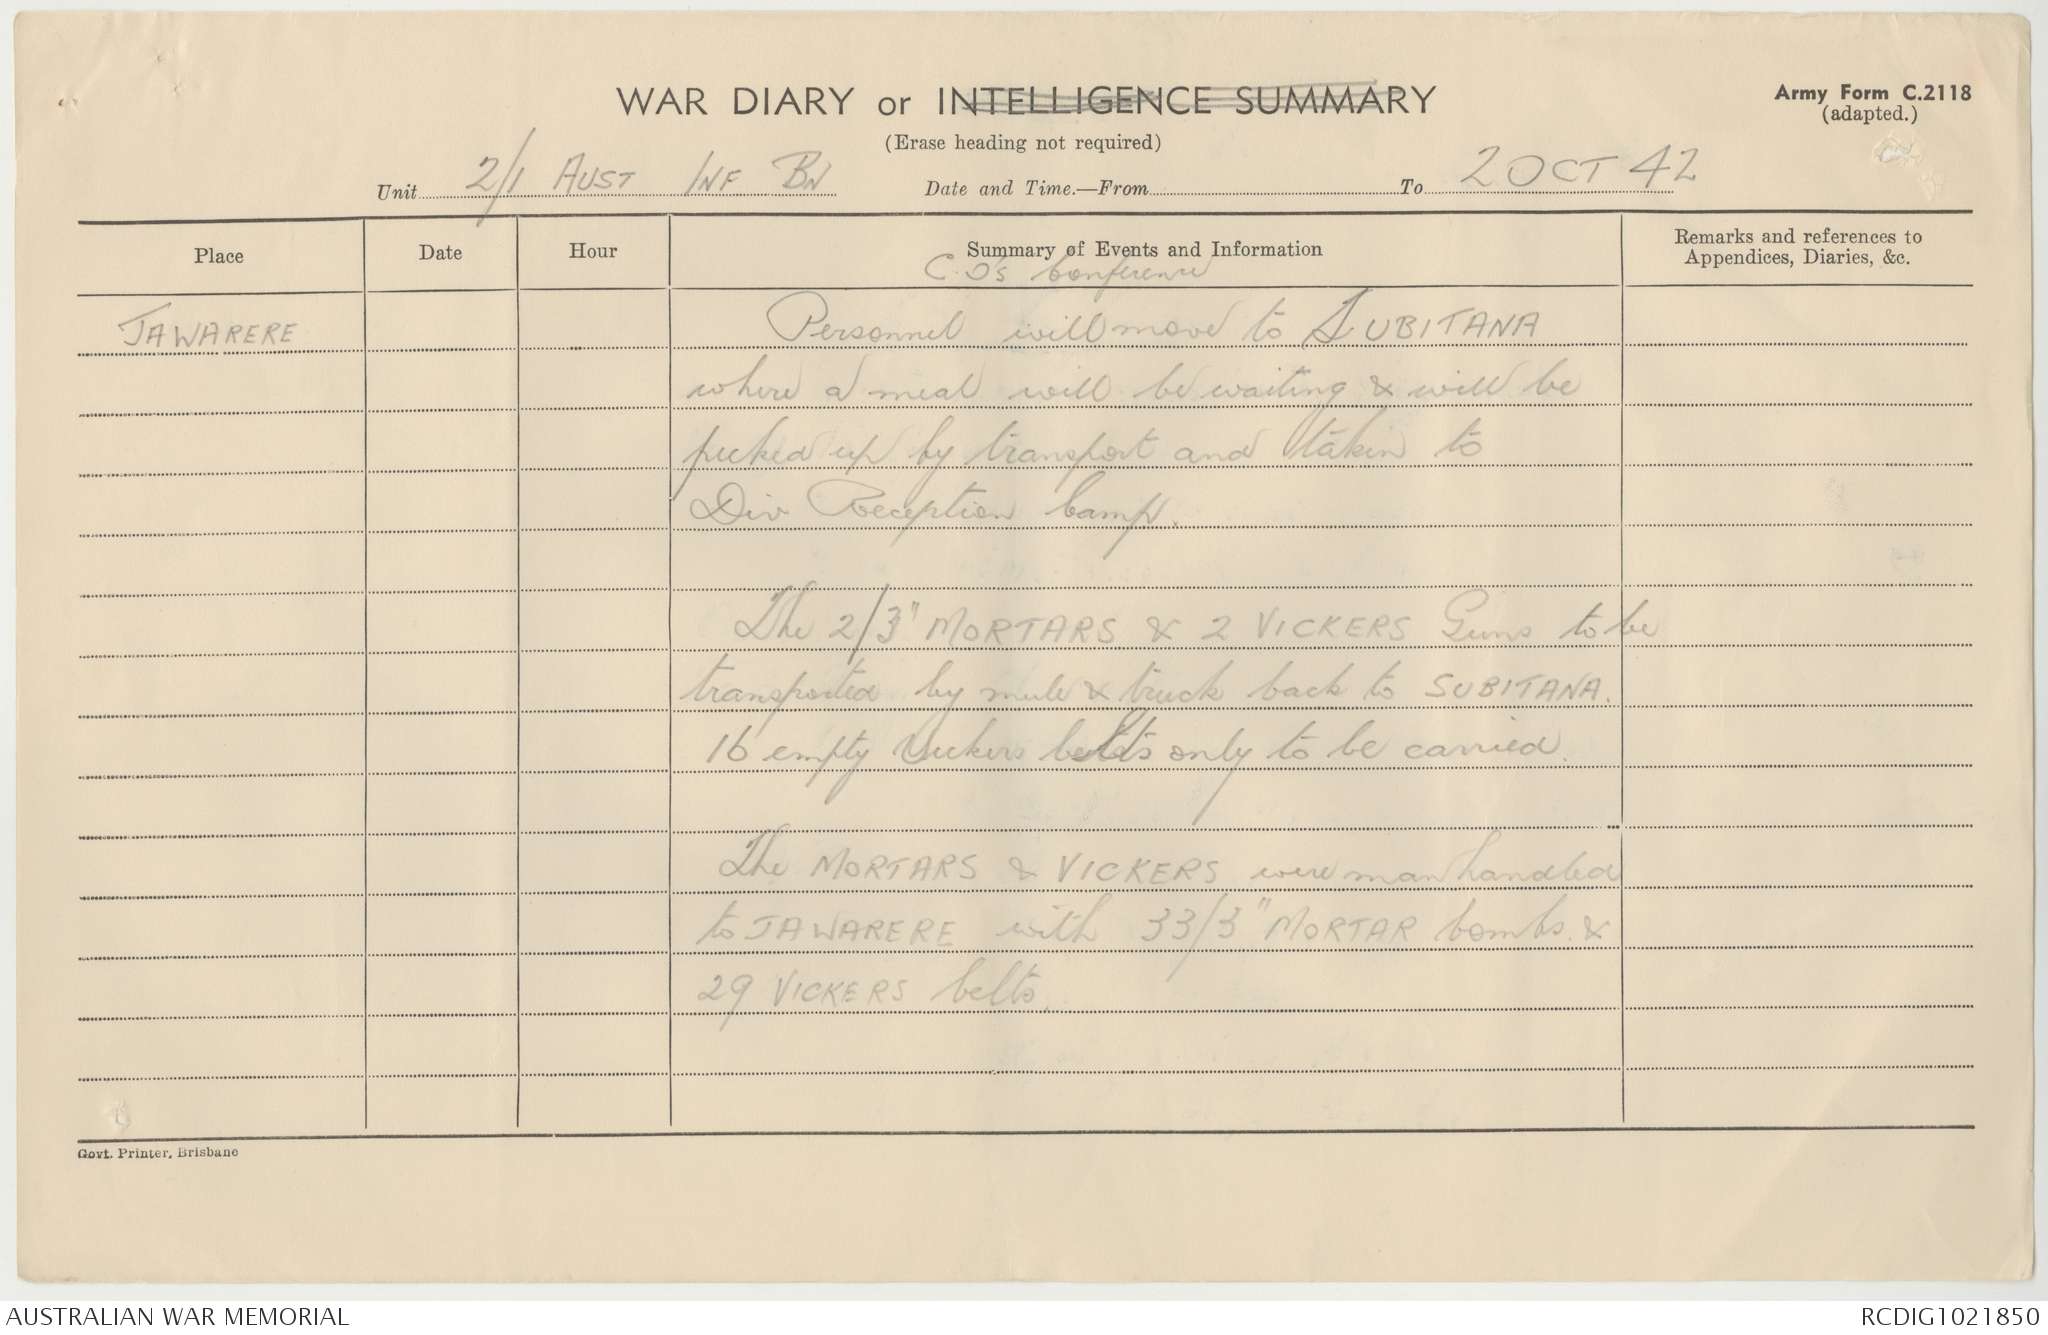 WAR DIARY or INTELLIGENCE SUMMARY
Army Form C.2118
(adapted.)
(Erase heading not required)
Unit 2/1 AUST INF BN Date and Time.—From To 2 OCT 42
Place Date Hour Summary of Events and Information Remarks and references to Appendices, Diaries, &c.
C.O's Conference
JAWARERE Personnel will move to SUBITANA
where a meal will be waiting & will be
picked up by transport and taken to
Div Reception Camp.
The 2/3" MORTARS & 2 VICKERS Guns to be
transported by mule & truck back to SUBITANA.
16 empty Vickers belts only to be carried.
The MORTARS & VICKERS were man handled
to JAWARERE with 33/3" MORTAR bombs. &
29 VICKERS belts.
Govt. Printer, Brisbane
AUSTRALIAN WAR MEMORIAL
RCDIG1021850